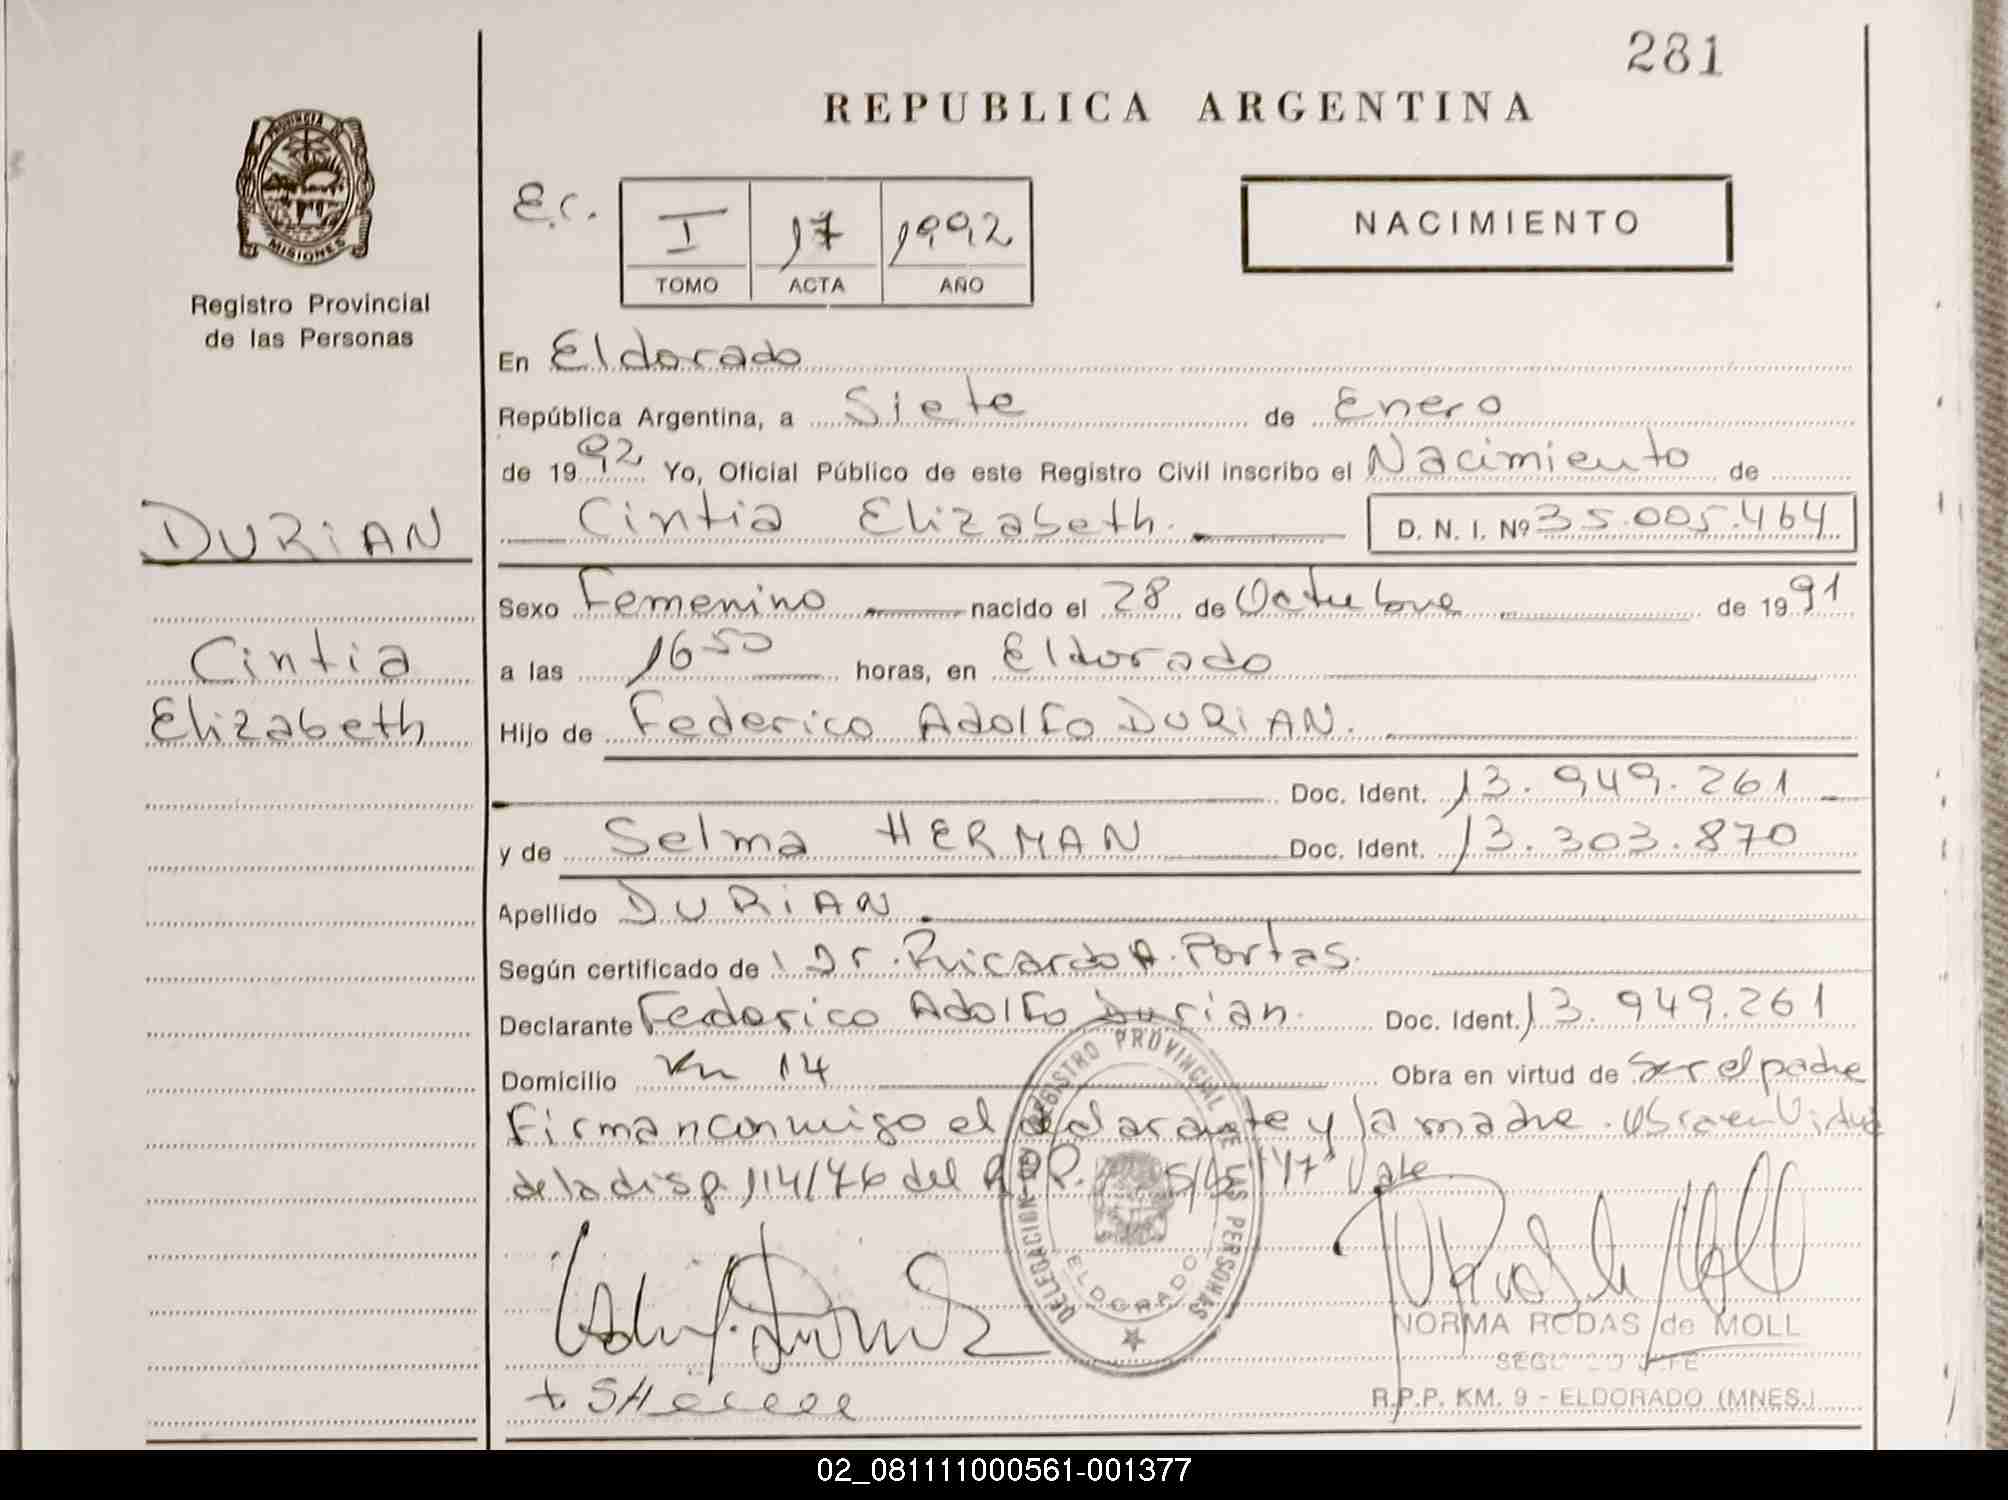 281
REPUBLICA ARGENTINA
PROVINCIA DE
MISIONES
Registro Provincial
de las Personas
E.C.
I 17 1992
TOMO ACTA AÑO
NACIMIENTO
En Eldorado
República Argentina, a Siete de Enero
de 1992 Yo, Oficial Público de este Registro Civil inscribo el Nacimiento de
Cintia Elizabeth. D. N. I. Nº 35.005.464
DURIAN
Cintia
Elizabeth
Sexo Femenino nacido el 28 de Octubre de 1991
a las 1650 horas, en Eldorado
Hijo de Federico Adolfo DURIAN.
Doc. Ident. 13.949.261
y de Selma HERMAN Doc. Ident. 13.303.870
Apellido DURIAN
Según certificado de Dr. Ricardo A. Portas.
Declarante Federico Adolfo Durian. Doc. Ident. 13.949.261
Domicilio Km 14 Obra en virtud de Ser el padre
Firman conmigo el declarante y la madre. Obra en Virtud
de la disp. 114/76 del R.P.P. "17" Vale
DELEGACION DEL REGISTRO PROVINCIAL DE LAS PERSONAS
ELDORADO
NORMA RODAS de MOLL
R.P.P. KM. 9 - ELDORADO (MNES.)
02_081111000561-001377